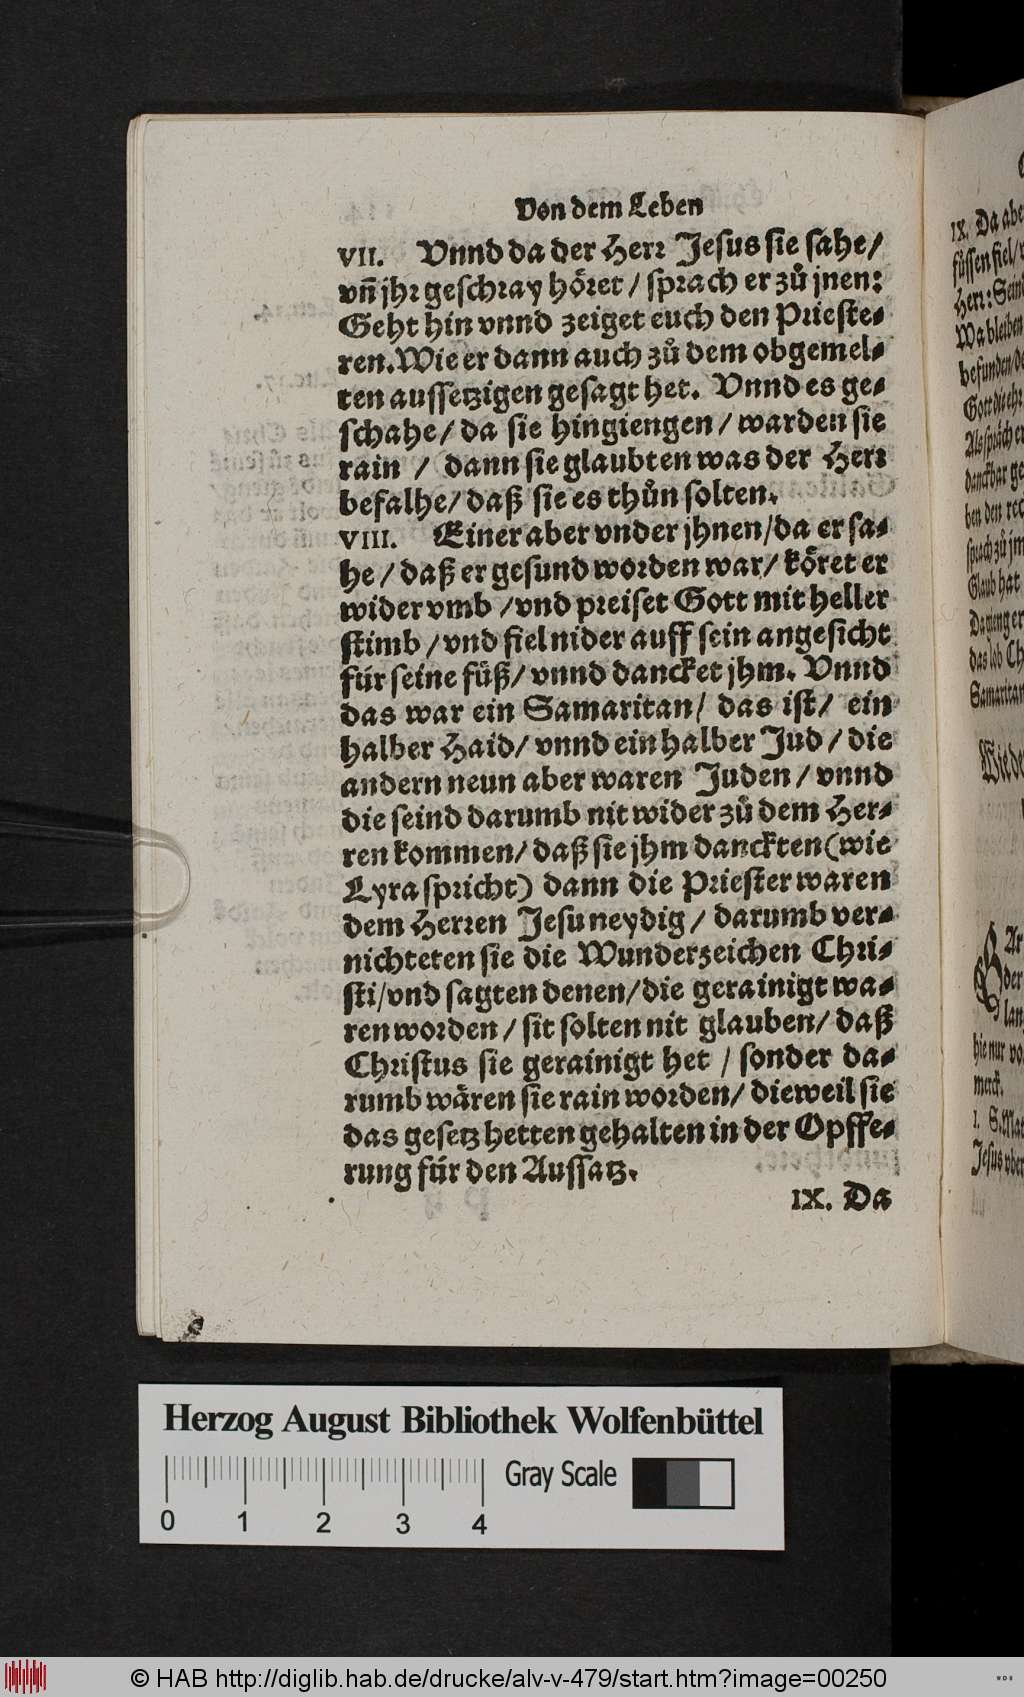 Von dem Leben
VII. Vnnd da der Herr Jesus sie sahe/
vñ jhr geschray höret / sprach er zů jnen:
Geht hin vnnd zeiget euch den Prieste-
ren. Wie er dann auch zů dem obgemel-
ten aussetzigen gesagt het. Vnnd es ge-
schahe/ da sie hingiengen / warden sie
rain / dann sie glaubten was der Herr
befalhe/ daß sie es thůn solten.
VIII. Einer aber vnder jhnen/da er sa-
he / daß er gesund worden war/ köret er
wider vmb /vnd preiset Gott mit heller
stimb / vnd fiel nider auff sein angesicht
für seine füß/ vnnd dancket jhm. Vnnd
das war ein Samaritan/ das ist/ ein
halber Haid/ vnnd ein halber Jud / die
andern neun aber waren Juden / vnnd
die seind darumb nit wider zů dem Her-
ren kommen/ daß sie jhm danckten (wie
Lyra spricht) dann die Priester waren
dem Herren Jesu neydig / darumb ver-
nichteten sie die Wunderzeichen Chri-
sti/vnd sagten denen/die gerainigt wa-
ren worden / sit solten nit glauben/ daß
Christus sie gerainigt het / sonder da-
rumb wären sie rain worden/ dieweil sie
das gesetz hetten gehalten in der Opffe-
rung für den Aussatz.
IX. Da
IX. Da abe
füssen fiel/
Herr: Sein
Wa bleiben
befunden/
Gott die ehr
Als spräch er
danckbar ge
ben den rec
sprach zů jm
Glaub hat
Da gieng er
das lob Ch
Samaritan
Wie de
Ar
der
lan
hie nur vo
merck.
1. S. Mat
Jesus vber
Herzog August Bibliothek Wolfenbüttel
Gray Scale
0 1 2 3 4
© HAB http://diglib.hab.de/drucke/alv-v-479/start.htm?image=00250